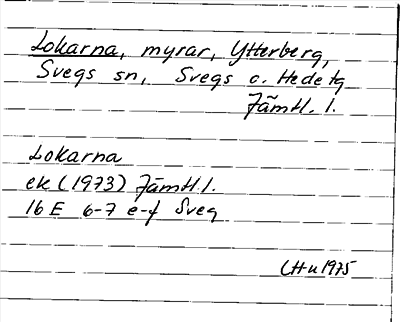 Lokarna, myrar, Ytterberg,
Svegs sn, Svegs o. Hede tg
Jämtl. l.
Lokarna
ek (1973) Jämtl l.
16 E 6-7 e-f Sveg
LHu 1975